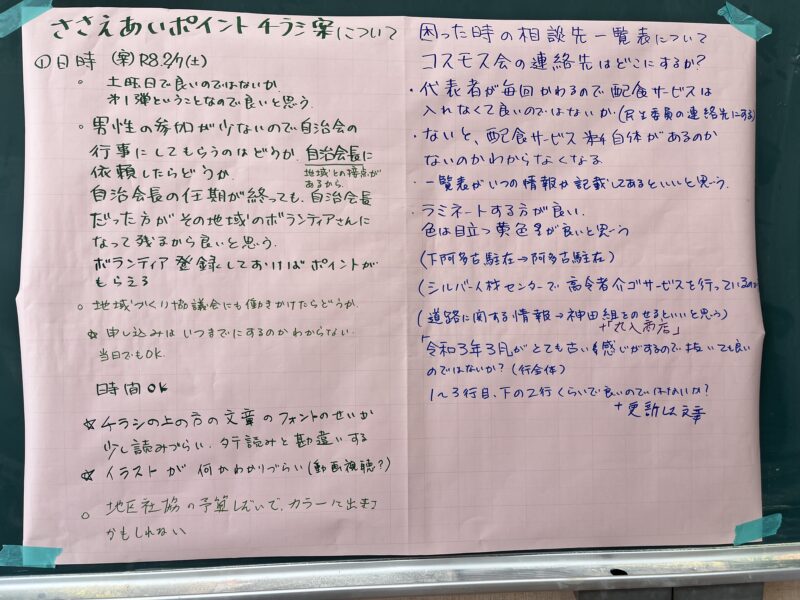 ささえあいポイントチラシ案について
①日時 (案)R8.2/7(土)
○ 土曜日で良いのではないか
第1弾ということなので良いと思う.
○ 男性の参加が少ないので自治会の
行事にしてもらうのはどうか. 自治会長に
依頼したらどうか. 地域との接点が
あるから.
自治会長の任期が終っても、自治会長
だった方がその地域のボランティアさんに
なって残るから良いと思う.
ボランティア登録しておけばポイントが
もらえる
○ 地域づくり協議会にも働きかけたらどうか.
☆ 申し込みはいつまでにするのかわからない.
当日でもOK.
時間OK
☆ チラシの上の方の文章のフォントのせいか
少し読みづらい. タテ読みと勘違いする
☆ イラストが何かわかりづらい(動画視聴?)
○ 地区社協の予算しだいで、カラーに出来る
かもしれない
困った時の相談先一覧表について
コスモス会の連絡先はどこにするか?
・代表者が毎回かわるので配食サービスは
入れなくて良いのではないか.(民生委員の連絡先にする)
・ないと、配食サービス自体があるのか
ないのかわからなくなる.
・一覧表がいつの情報か記載してあるといいと思う.
・ラミネートする方が良い.
色は目立つ黄色が良いと思う
(下阿多古駐在→阿多古駐在)
(シルバー人材センターで高令者介ゴサービスを行っているのか)
(道路に関する情報→神田組をのせるといいと思う)
+「丸入商店」
「令和3年3月」がとても古い感じがするので抜いても良い
のではないか?(行全体)
1〜3行目、下の2行くらいで良いのではないか?
+更新した文章